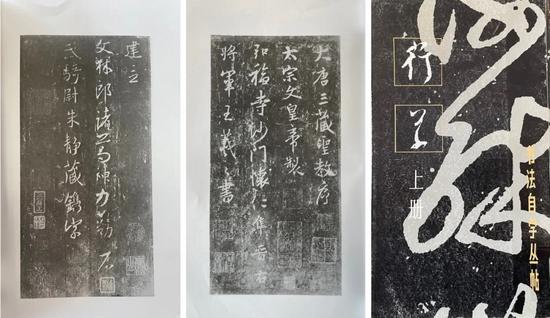 建立
文林郎諸葛神力勒石
武騎尉朱靜藏鐫字
大唐三藏聖教序
太宗文皇帝製
弘福寺沙門懷仁集晉右
將軍王羲之書
书法自学丛帖
行草
上册